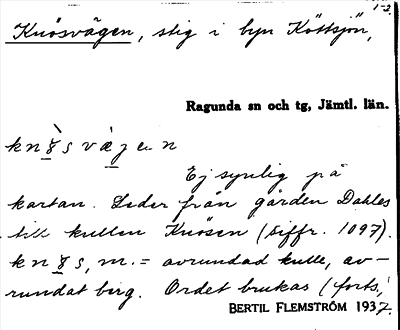 1-2.
Knösvägen, stig i byn Köttsjön,
Ragunda sn och tg, Jämtl. län.
Ej synlig på
kartan. Leder från gården Dahles
till kullen Knösen (siffr. 1097).
m. = avrundad kulle, av-
rundat berg. Ordet brukas (forts.)
BERTIL FLEMSTRÖM 1937.